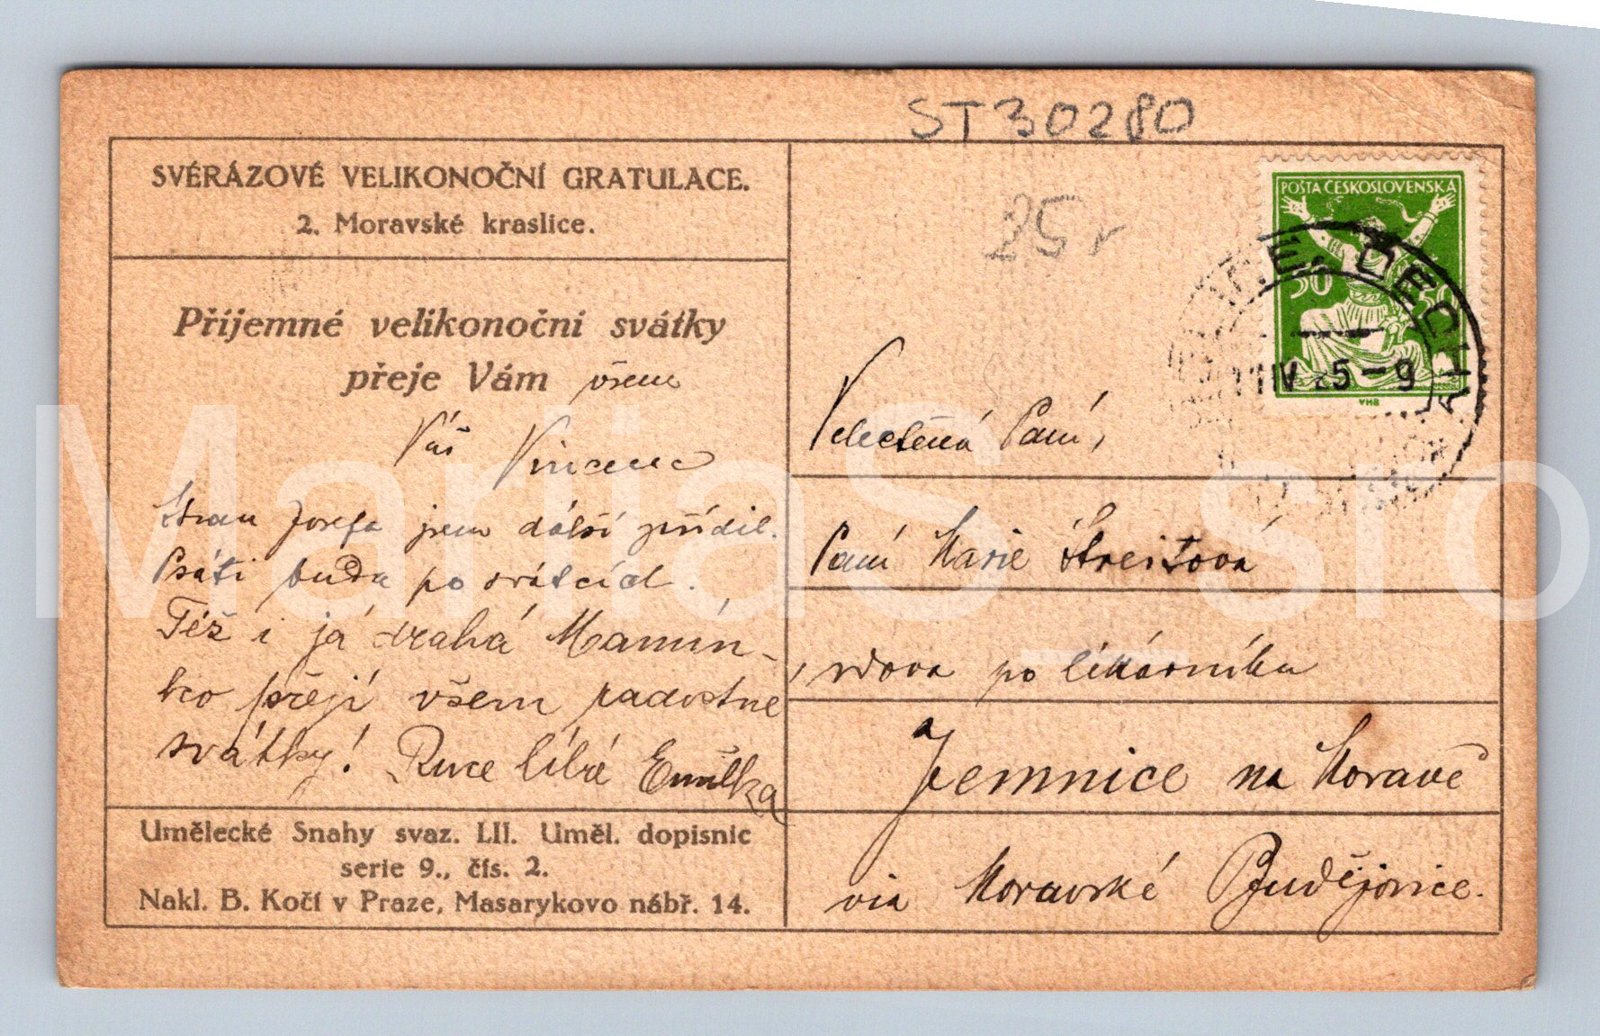 ST30280
25r
SVÉRÁZOVÉ VELIKONOČNÍ GRATULACE.
2. Moravské kraslice.
Příjemné velikonoční svátky
přeje Vám všem
Váš Vincenc
Stran Josefa jsem dálší zřídil.
Psáti budu po svátcích.
Též i já drahá Mamin-
ko přeji všem radostne
svátky! Ruce líbá Emilka
Umělecké Snahy svaz. LII. Uměl. dopisnic
serie 9., čís. 2.
Nakl. B. Kočí v Praze, Masarykovo nábř. 14.
POŠTA ČESKOSLOVENSKÁ
50
VHB
ČECHÁCH
IV 25-9
Velectěná Paní,
Paní Marie Štreitová
vdova po lékárníku
Jemnice na Moravě
via Moravské Budějovice.
MartaS_sro